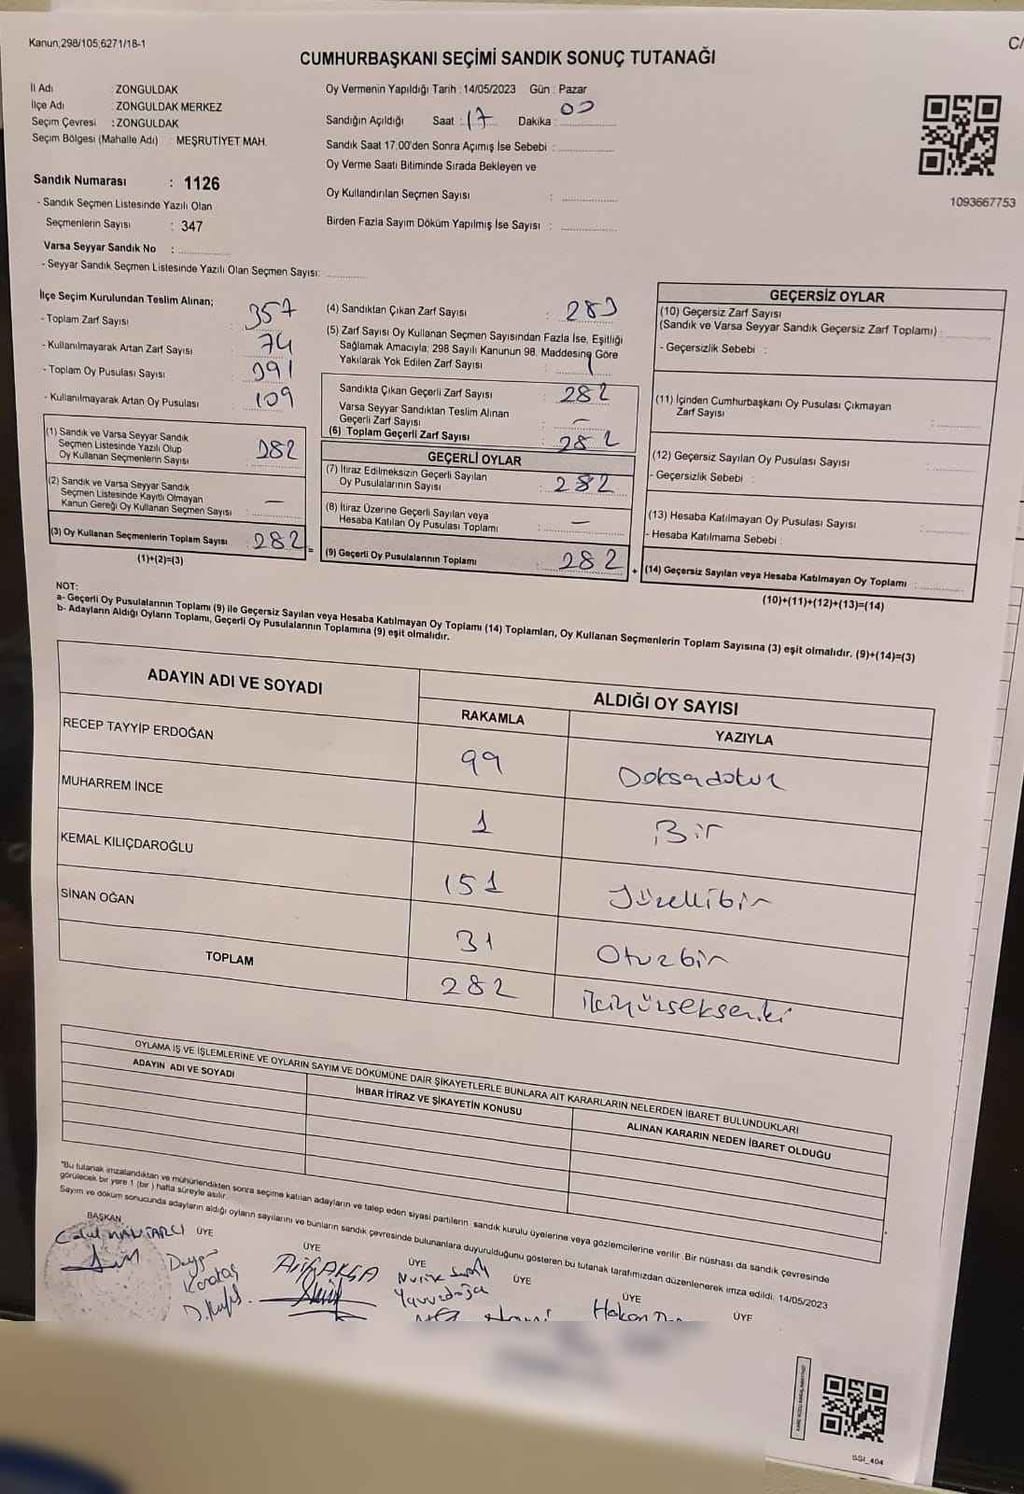 Kanun,298/105,6271/18-1
C/
CUMHURBAŞKANI SEÇİMİ SANDIK SONUÇ TUTANAĞI
İl Adı : ZONGULDAK
İlçe Adı : ZONGULDAK MERKEZ
Seçim Çevresi : ZONGULDAK
Seçim Bölgesi (Mahalle Adı) : MEŞRUTİYET MAH.
Oy Vermenin Yapıldığı Tarih : 14/05/2023 Gün : Pazar
Sandığın Açıldığı Saat : 17 Dakika : 00
Sandık Saat 17.00'den Sonra Açımış İse Sebebi :
Oy Verme Saati Bitiminde Sırada Bekleyen ve
Oy Kullandırılan Seçmen Sayısı :
Birden Fazla Sayım Döküm Yapılmış İse Sayısı :
1093667753
Sandık Numarası : 1126
- Sandık Seçmen Listesinde Yazılı Olan
Seçmenlerin Sayısı : 347
Varsa Seyyar Sandık No :
- Seyyar Sandık Seçmen Listesinde Yazılı Olan Seçmen Sayısı:
İlçe Seçim Kurulundan Teslim Alınan;
- Toplam Zarf Sayısı : 357
- Kullanılmayarak Artan Zarf Sayısı : 74
- Toplam Oy Pusulası Sayısı : 391
- Kullanılmayarak Artan Oy Pusulası : 109
(1) Sandık ve Varsa Seyyar Sandık
Seçmen Listesinde Yazılı Olup
Oy Kullanan Seçmenlerin Sayısı 282
(2) Sandık ve Varsa Seyyar Sandık
Seçmen Listesinde Kayıtlı Olmayan
Kanun Gereği Oy Kullanan Seçmen Sayısı : —
(3) Oy Kullanan Seçmenlerin Toplam Sayısı 282 =
(1)+(2)=(3)
(4) Sandıktan Çıkan Zarf Sayısı : 283
(5) Zarf Sayısı Oy Kullanan Seçmen Sayısından Fazla İse, Eşitliği
Sağlamak Amacıyla; 298 Sayılı Kanunun 98. Maddesine Göre
Yakılarak Yok Edilen Zarf Sayısı : 1
Sandıkta Çıkan Geçerli Zarf Sayısı : 282
Varsa Seyyar Sandıktan Teslim Alınan
Geçerli Zarf Sayısı : —
(6) Toplam Geçerli Zarf Sayısı 282
GEÇERLİ OYLAR
(7) İtiraz Edilmeksizin Geçerli Sayılan
Oy Pusulalarının Sayısı : 282
(8) İtiraz Üzerine Geçerli Sayılan veya
Hesaba Katılan Oy Pusulası Toplamı : —
(9) Geçerli Oy Pusulalarının Toplamı 282 +
GEÇERSİZ OYLAR
(10) Geçersiz Zarf Sayısı
(Sandık ve Varsa Seyyar Sandık Geçersiz Zarf Toplamı) :
- Geçersizlik Sebebi :
(11) İçinden Cumhurbaşkanı Oy Pusulası Çıkmayan
Zarf Sayısı :
(12) Geçersiz Sayılan Oy Pusulası Sayısı :
- Geçersizlik Sebebi :
(13) Hesaba Katılmayan Oy Pusulası Sayısı :
- Hesaba Katılmama Sebebi :
(14) Geçersiz Sayılan veya Hesaba Katılmayan Oy Toplamı :
(10)+(11)+(12)+(13)=(14)
NOT:
a- Geçerli Oy Pusulalarının Toplamı (9) ile Geçersiz Sayılan veya Hesaba Katılmayan Oy Toplamı (14) Toplamları, Oy Kullanan Seçmenlerin Toplam Sayısına (3) eşit olmalıdır. (9)+(14)=(3)
b- Adayların Aldığı Oyların Toplamı, Geçerli Oy Pusulalarının Toplamına (9) eşit olmalıdır.
ADAYIN ADI VE SOYADI
ALDIĞI OY SAYISI
RAKAMLA YAZIYLA
RECEP TAYYİP ERDOĞAN 99 Doksadokuz
MUHARREM İNCE 1 Bir
KEMAL KILIÇDAROĞLU 151 Yüzellibir
SİNAN OĞAN 31 Otuzbir
TOPLAM 282 ikiyüzseksenki
OYLAMA İŞ VE İŞLEMLERİNE VE OYLARIN SAYIM VE DÖKÜMÜNE DAİR ŞİKAYETLERLE BUNLARA AİT KARARLARIN NELERDEN İBARET BULUNDUKLARI
ADAYIN ADI VE SOYADI
İHBAR İTİRAZ VE ŞİKAYETİN KONUSU
ALINAN KARARIN NEDEN İBARET OLDUĞU
"Bu tutanak imzalandıktan ve mühürlendikten sonra seçime katılan adayların ve talep eden siyasi partilerin sandık kurulu üyelerine veya gözlemcilerine verilir. Bir nüshası da sandık çevresinde
görülecek bir yere 1 (bir) hafta süreyle asılır.
Sayım ve döküm sonucunda adayların aldığı oyların sayılarını ve bunların sandık çevresinde bulunanlara duyurulduğunu gösteren bu tutanak tarafımızdan düzenlenerek imza edildi. 14/05/2023
BAŞKAN ÜYE ÜYE ÜYE ÜYE ÜYE ÜYE
Duygu
Karataş
Arif AKÇA
Hakan
SSI_404